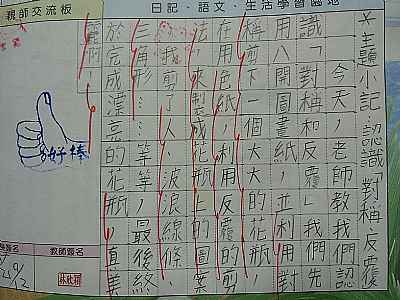 日記、語文、生活學習園地
親師交流板
*主題小記：認識「對稱、反覆
今天，老師教我們認
識「對稱和反覆」我們先
用八開圖畫紙並利用對
稱剪下一個大大的花瓶，
在用色紙，利用反覆的剪
法來製成花瓶上的圖案
我剪了人、波浪線條、
三角形…等等，最後終
於完成漂亮的花瓶，真美
好棒